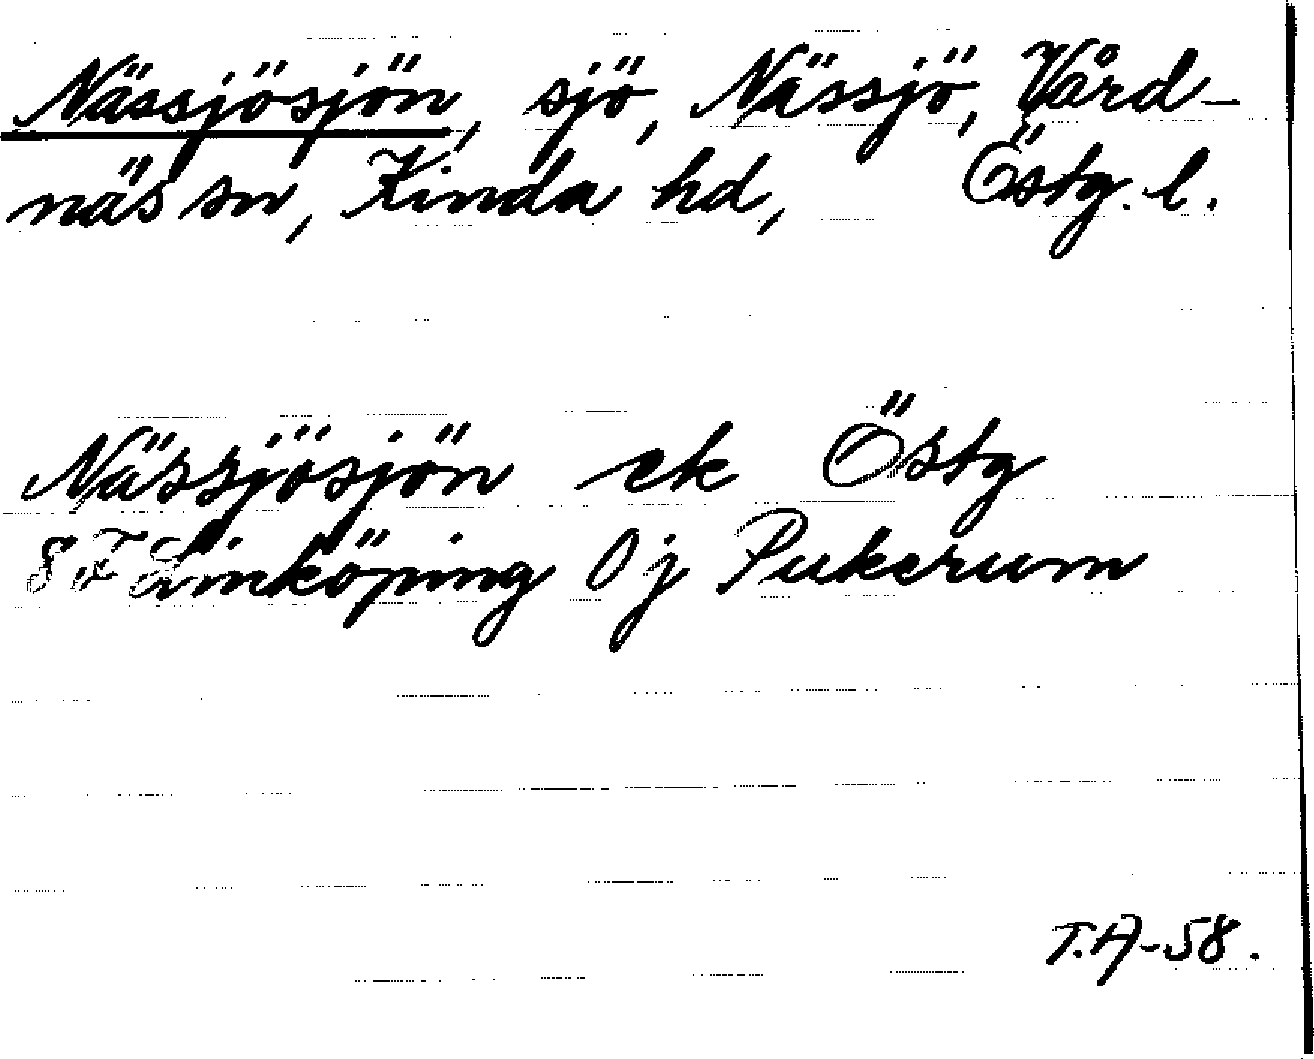 Nässjösjön, sjö, Nässjö, Vård-
näs sn, Kinda hd, Östg. l.
Nässjösjön ek Östg
S F Linköping Öj Pukerum
T.A-58.